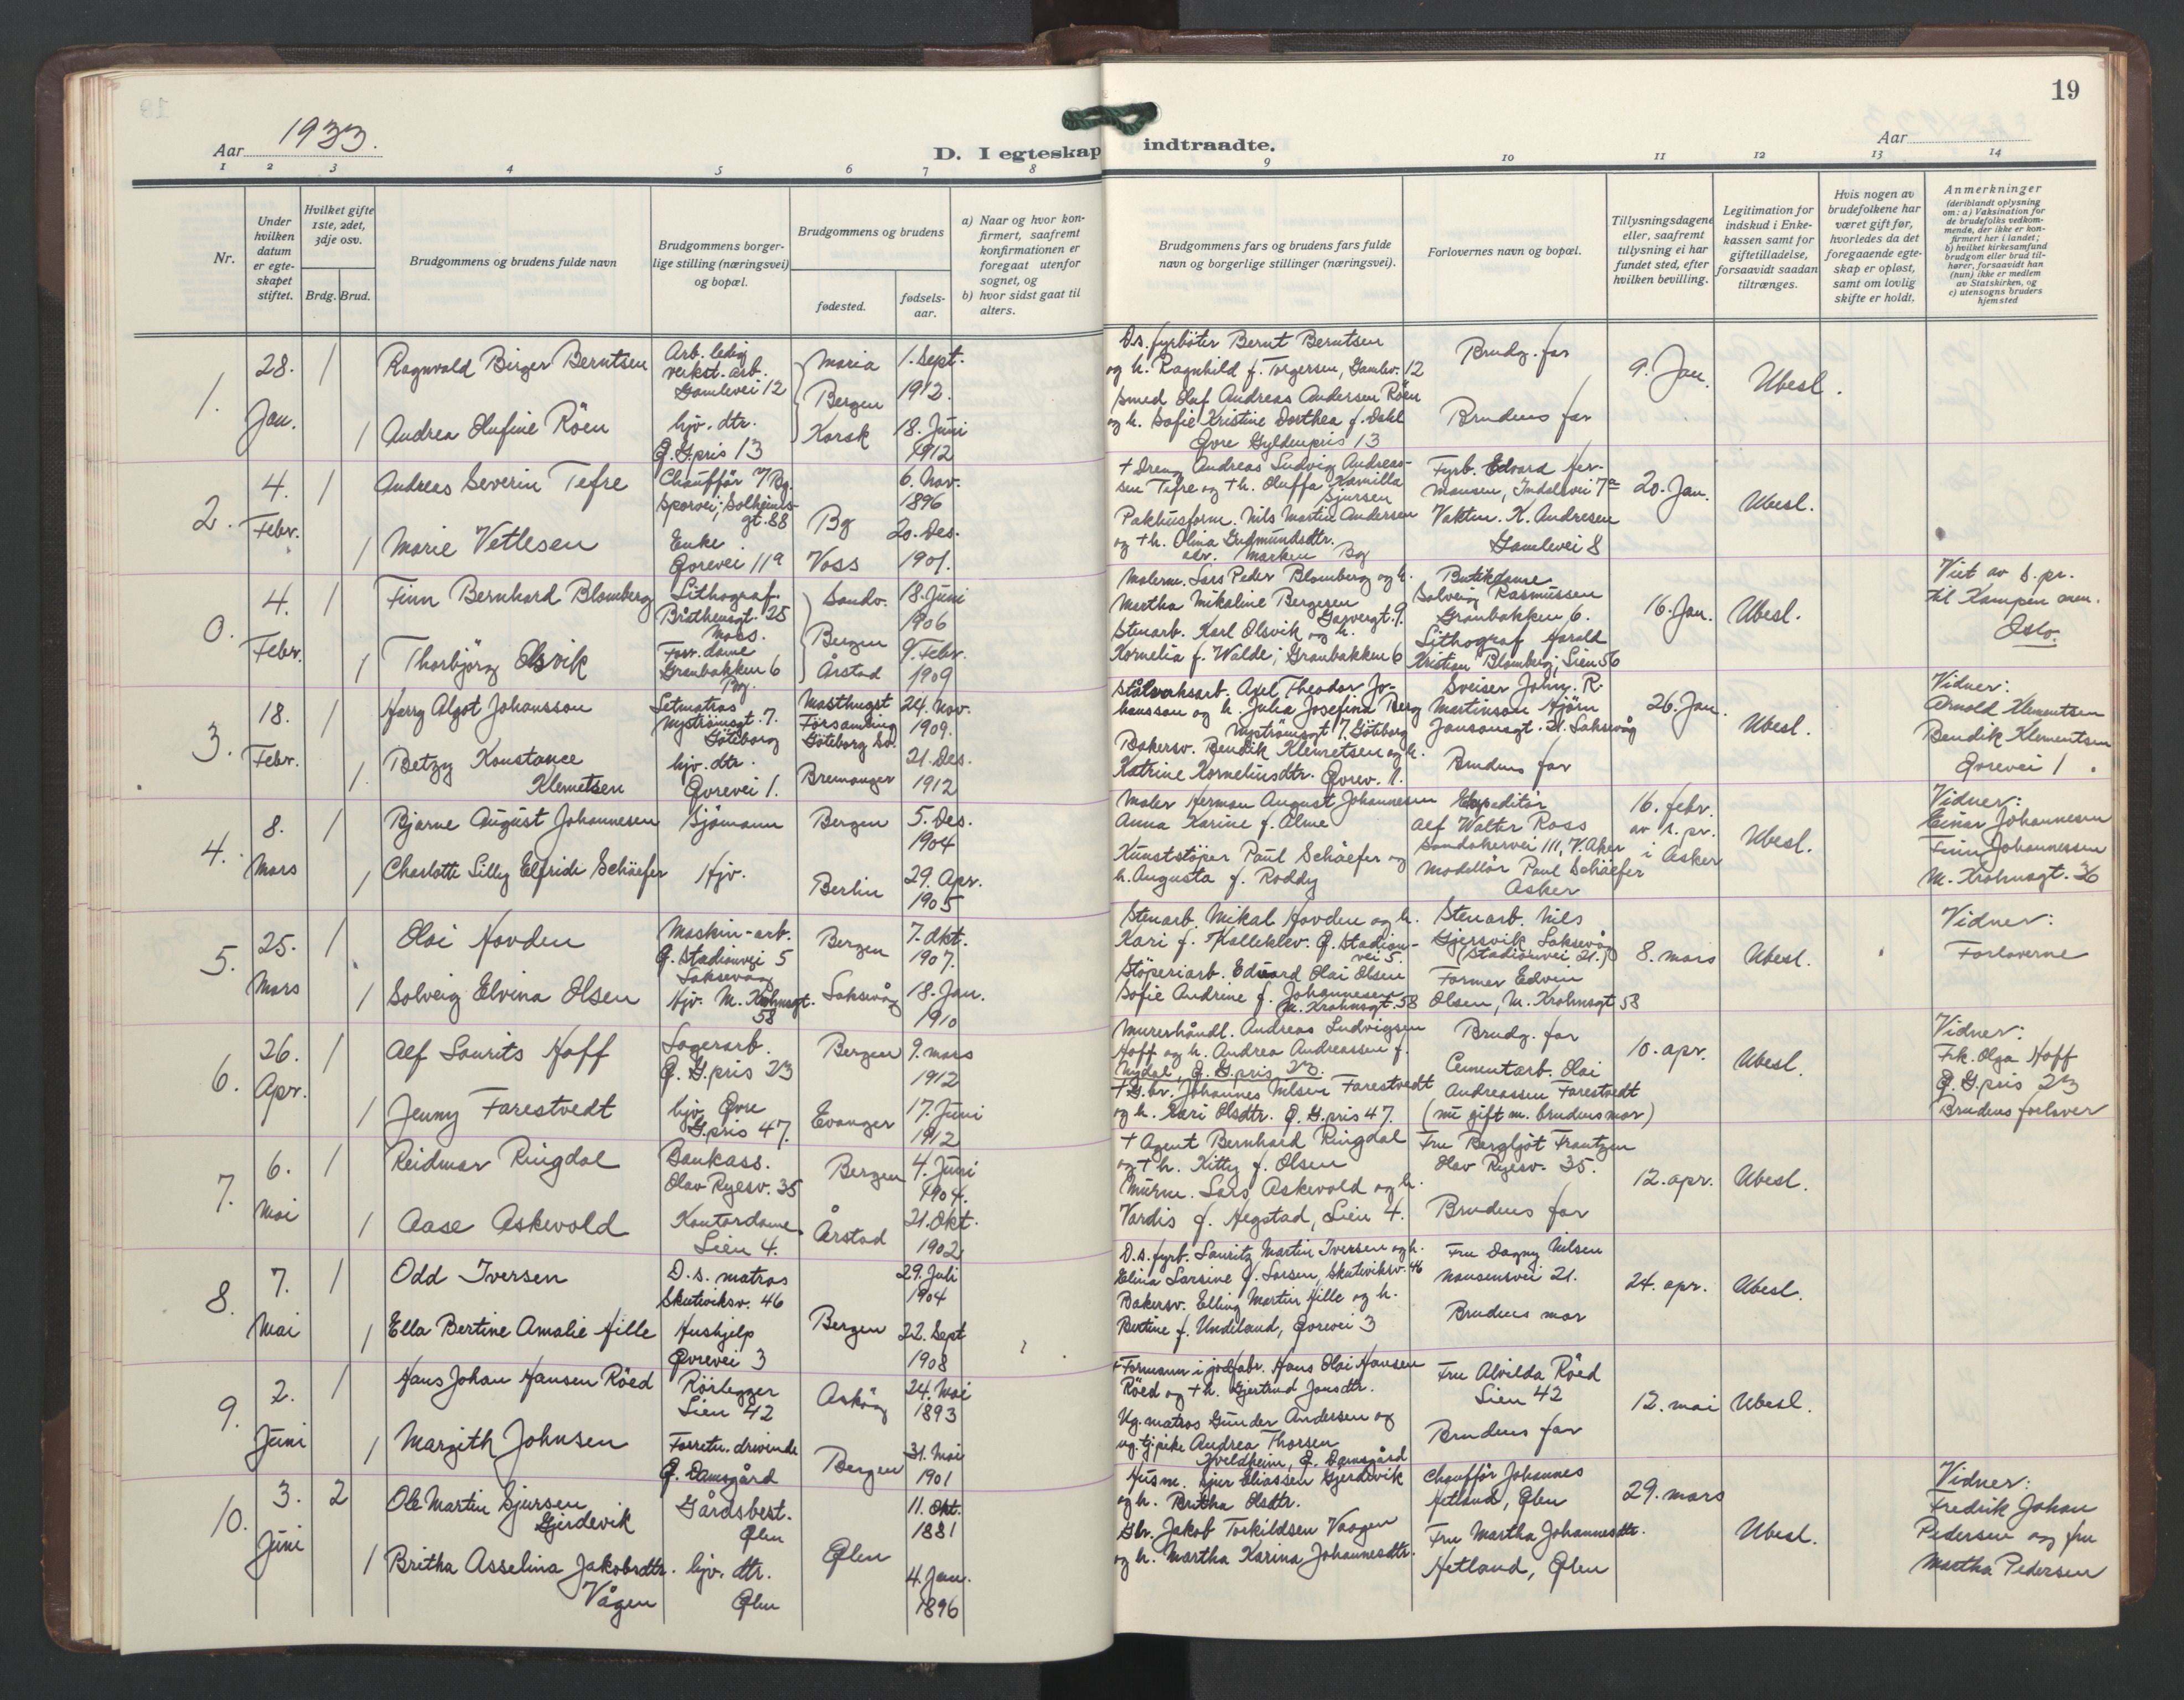 19
Aar 1933.
D. I egteskap indtraadte.
Aar
1 2 3 4 5 6 7 8 9 10 11 12 13 14
Nr.
Under hvilken datum er egte-skapet stiftet.
Hvilket gifte 1ste, 2det, 3dje osv.
Brdg. Brud.
Brudgommens og brudens fulde navn
Brudgommens borger-lige stilling (næringsvei) og bopæl.
Brudgommens og brudens
fødested.
fødsels-aar.
a) Naar og hvor kon-firmert, saafremt konfirmationen er foregaat utenfor sognet, og
b) hvor sidst gaat til alters.
Brudgommens fars og brudens fars fulde navn og borgerlige stillinger (næringsvei).
Forlovernes navn og bopæl.
Tillysningsdagene eller, saafremt tillysning ei har fundet sted, efter hvilken bevilling.
Legitimation for indskud i Enke-kassen samt for giftetilladelse, forsaavidt saadan tiltrænges.
Hvis nogen av brudefolkene har været gift før, hvorledes da det foregaaende egte-skap er opløst, samt om lovlig skifte er holdt.
Anmerkninger
(deriblandt oplysning om: a) Vaksination for de brudefolks vedkom-mende, der ikke er kon-firmert her i landet;
b) hvilket kirkesamfund brudgom eller brud til-hører, forsaavidt han (hun) ikke er medlem av Statskirken, og
c) utensogns bruders hjemsted
1.
28. Jan.
1
Ragnvald Birger Berntsen
Arb. ledig
verkst. arb.
Gamlevei 12
Maria
Bergen
1. Sept.
1912.
1
Andrea Olufine Röen
hjv. dtr.
Ø. G.pris 13
Korsk
18. Juni
1912
Ds. fyrböter Bernt Berntsen
og h. Ragnhild f. Torgersen, Gamlev. 12
Smed Oluf Andreas Andersen Röen
og h. Sofie Kristine Dorthea f. Dahl
Øvre Gyldenpris 13
Brudg. far
Brudens far
9. Jan.
Ubesl.
2.
4. Febr.
1
Andreas Severin Tefre
Chauffør v/ Bg.
Sporvei; Solheims-
gt. 88
Bg
6. Nov.
1896
1
Marie Vetlesen
Enke
Øvrevei 11a
Voss
20. Des.
1901.
+ Dreng Andreas Ludvig Andreas-
sen Tefre og + h. Oluffa Kamilla
Sjursen
Pakhusform. Nils Martin Andersen
og + h. Olina Gudmundsdtr.
adr. Marken Bg
Fyrb. Edvard Her-
mansen, Indalsvei 7a
Vaktm. K. Andresen
Gamlevei 8
20. Jan.
Ubesl.
0.
4. Febr.
1
Finn Bernhard Blomberg
Lithograf.
Båthusgt. 25
Moss.
Sandv.
Bergen
18. Juni
1906
1
Thorbjörg Olsvik
Forr. dame
Granbakken 6
Bg.
Årstad
9. Febr.
1909
Malerm. Lars Peder Blomberg og h.
Martha Mikaline Bergesen
Garvergt. 9.
Stenarb. Karl Olsvik og h.
Kornelia f. Walde; Granbakken 6
Butikdame
Solveig Rasmussen
Granbakken 6.
Lithograf Harald
Kristian Blomberg; Lien 56
16. Jan.
Ubesl.
Viet av s.pr.
til Kampen men.
Oslo.
3.
18. Febr.
1
Harry Algot Johansson
Letmatros
Nyströmsgt. 7.
Göteborg
Masthugst
Församling
Göteborg Sv.
24. Nov.
1909.
1.
Betzy Konstance
Klemetsen
hjv. dtr.
Øvrevei 1.
Bremanger
21. Des.
1912
Stålverksarb. Axel Theodor Jo-
hansson og h. Julia Josefina Berg
Nyströmsgt 7. Göteborg
Bakersv. Bendik Klemetsen og h.
Katrine Kornelinsdtr. Øvrev. 1.
Sveiser Johny R.
Martinson Hjörn
Jansonsgt. 21. Laksevåg
Brudens far
26. Jan.
Ubesl.
Vidner:
Arnold Klementsen
Bendik Klementsen
Øvrevei 1.
4.
8. Mars
1
Bjarne August Johannesen
Sjömann
Bergen
5. Des.
1904
1
Charlotte Lilly Elfride Schäefer
Hjv.
Berlin
29. Apr.
1905
Maler Herman August Johannesen
Anna Karine f. Alme
Kunststöper Paul Schäefer og
h. Augusta f. Roddy
Expeditör
Alf Walter Ross
Sandakervei 111, V. Aker
Modellör Paul Schäefer
Asker
16. febr.
av s.pr.
i Asker
Ubesl.
Vidner:
Einar Johannesen
Finn Johannessen
M. Krohnsgt. 36
5.
25. Mars
1
Olai Hovden
Maskin-arb.
Ø. Stadionvei 5
Laksevåg
Bergen
7. Okt.
1907.
1
Solveig Elvina Olsen
Hjv. M. Krohnsgt.
58
Laksevåg
18. Jan.
1910
Stenarb. Mikal Hovden og h.
Kari f. Kalleklev. Ø. Stadion-
vei 5.
Stöperiarb. Edvard Olai Olsen
Sofie Andrine f. Johannesen
M. Krohnsgt. 58
Stenarb. Nils
Gjersvik, Laksevåg
(Stadionvei 21.)
Former Edvin
Olsen, M. Krohnsgt 58
8. mars
Ubesl.
Vidner:
Forloverne
6.
26. Apr.
1
Alf Laurits Hoff
Lagerarb.
Ø. G.pris 23
Bergen
9. mars
1912
1
Jenny Farestvedt
hjv. Øvre
G.pris 47.
Evanger
17. Juni
1912
Murerhåndl. Andreas Ludvigsen
Hoff og h. Andrea Andreassen f.
Nydal, Ø. G.pris 23.
+ G.br. Johannes Nilsen Farestvedt
og h. Kari Olsdtr. Ø. G.pris 47.
Brudg. far
Cementarb. Olai
Andreassen Farestvedt
(nu gift m. brudens mor)
10. apr.
Ubesl.
Vidner:
Frk. Olga Hoff
Ø. G.pris 23
Brudens forlover
7.
6. Mai
1
Reidmar Ringdal
Bankass.
Olav Ryesv. 35
Bergen
4. Juni
1904.
1
Aase Askevold
Kontordame
Lien 4.
Årstad
21. Okt.
1902
+ Agent Bernhard Ringdal
og + h. Kitty f. Olsen
Murm. Lars Askevold og h.
Vardis f. Hegstad, Lien 4.
Fru Bergljot Frantzen
Olav Ryesv. 35.
Brudens far
12. apr.
Ubesl.
8.
7. Mai
1
Odd Iversen
D.s. matros
Skuteviksv. 46
Bergen
29. Juli
1904
1
Ella Bertine Amalie Hille
Hushjelp
Øvrevei 3
22. Sept
1908
D.s. fyrb. Lauritz Martin Iversen og h.
Elina Larsine f. Larsen, Skuteviksv. 46
Bakersv. Elling Martin Hille og h.
Bertine f. Undeland, Øvrevei 3
Fru Dagny Nilsen
Nansensvei 21.
Brudens mor
24. apr.
Ubesl.
9.
2. Juni
1
Hans Johan Hansen Röed
Rörlegger
Lien 42
Asköy
24. Mai
1893
1
Margith Johnsen
Forretn. drivende
Ø. Damsgård
Bergen
31. Mai
1901
+ Formann i jodfabr. Hans Olai Hansen
Röed og + h. Gjertrud Jonsdtr.
Ug. matros Gunder Andersen og
ug. tj.pike Andrea Thorsen
Kveldheim, Ø. Damsgård
Fru Alvilda Röed
Lien 42
Brudens far
12. mai
Ubesl.
10.
3. Juni
2
Ole Martin Sjursen
Gjerdevik
Gårdsbest.
Ølen
Ølen
11. Okt.
1881
1
Britha Asselina Jakobsdtr.
Vågen
hjv. dtr.
Ølen
4. Jan.
1896
Husm. Sjur Eliassen Gjerdevik
og h. Britha Olsdtr.
Gbr. Jakob Torkildsen Vaagen
og h. Martha Karina Johannesdtr.
Chauffør Johannes
Hetland, Ølen
Fru Martha Johannesdtr.
Hetland, Ølen
29. mars
Ubesl.
Vidner:
Fredrik Johan
Pedersen og fru
Martha Pedersen